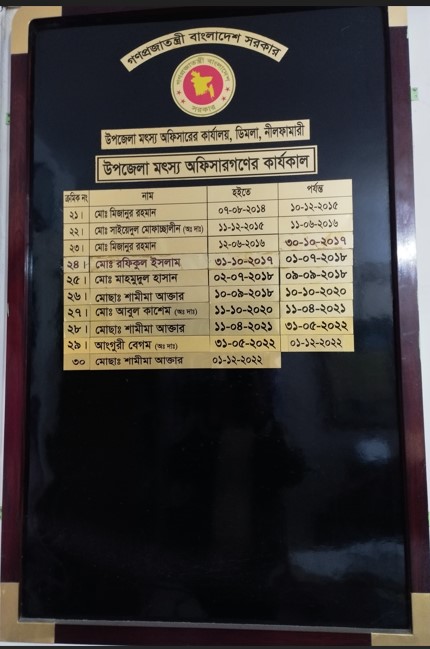 গণপ্রজাতন্ত্রী বাংলাদেশ সরকার
গণপ্রজাতন্ত্রী বাংলাদেশ
সরকার
উপজেলা মৎস্য অফিসারের কার্যালয়, ডিমলা, নীলফামারী
উপজেলা মৎস্য অফিসারগণের কার্যকাল
ক্রমিক নং নাম হইতে পর্যন্ত
২১। মোঃ মিজানুর রহমান ০৭-০৮-২০১৪ ১০-১২-২০১৫
২২। মোঃ সাইয়েদুল মোফাচ্ছালীন (অঃ দাঃ) ১১-১২-২০১৫ ১১-০৬-২০১৬
২৩। মোঃ মিজানুর রহমান ১২-০৬-২০১৬ ৩০-১০-২০১৭
২৪। মোঃ রফিকুল ইসলাম ৩১-১০-২০১৭ ০১-০৭-২০১৮
২৫। মোঃ মাহমুদুল হাসান ০২-০৭-২০১৮ ০৯-০৯-২০১৮
২৬। মোছাঃ শামীমা আক্তার ১০-০৯-২০১৮ ১০-১০-২০২০
২৭। মোঃ আবুল কাশেম (অঃ দাঃ) ১১-১০-২০২০ ১১-০৪-২০২১
২৮। মোছাঃ শামীমা আক্তার ১১-০৪-২০২১ ৩১-০৫-২০২২
২৯। আংগুরী বেগম (অঃ দাঃ) ৩১-০৫-২০২২ ০১-১২-২০২২
৩০ মোছাঃ শামীমা আক্তার ০১-১২-২০২২